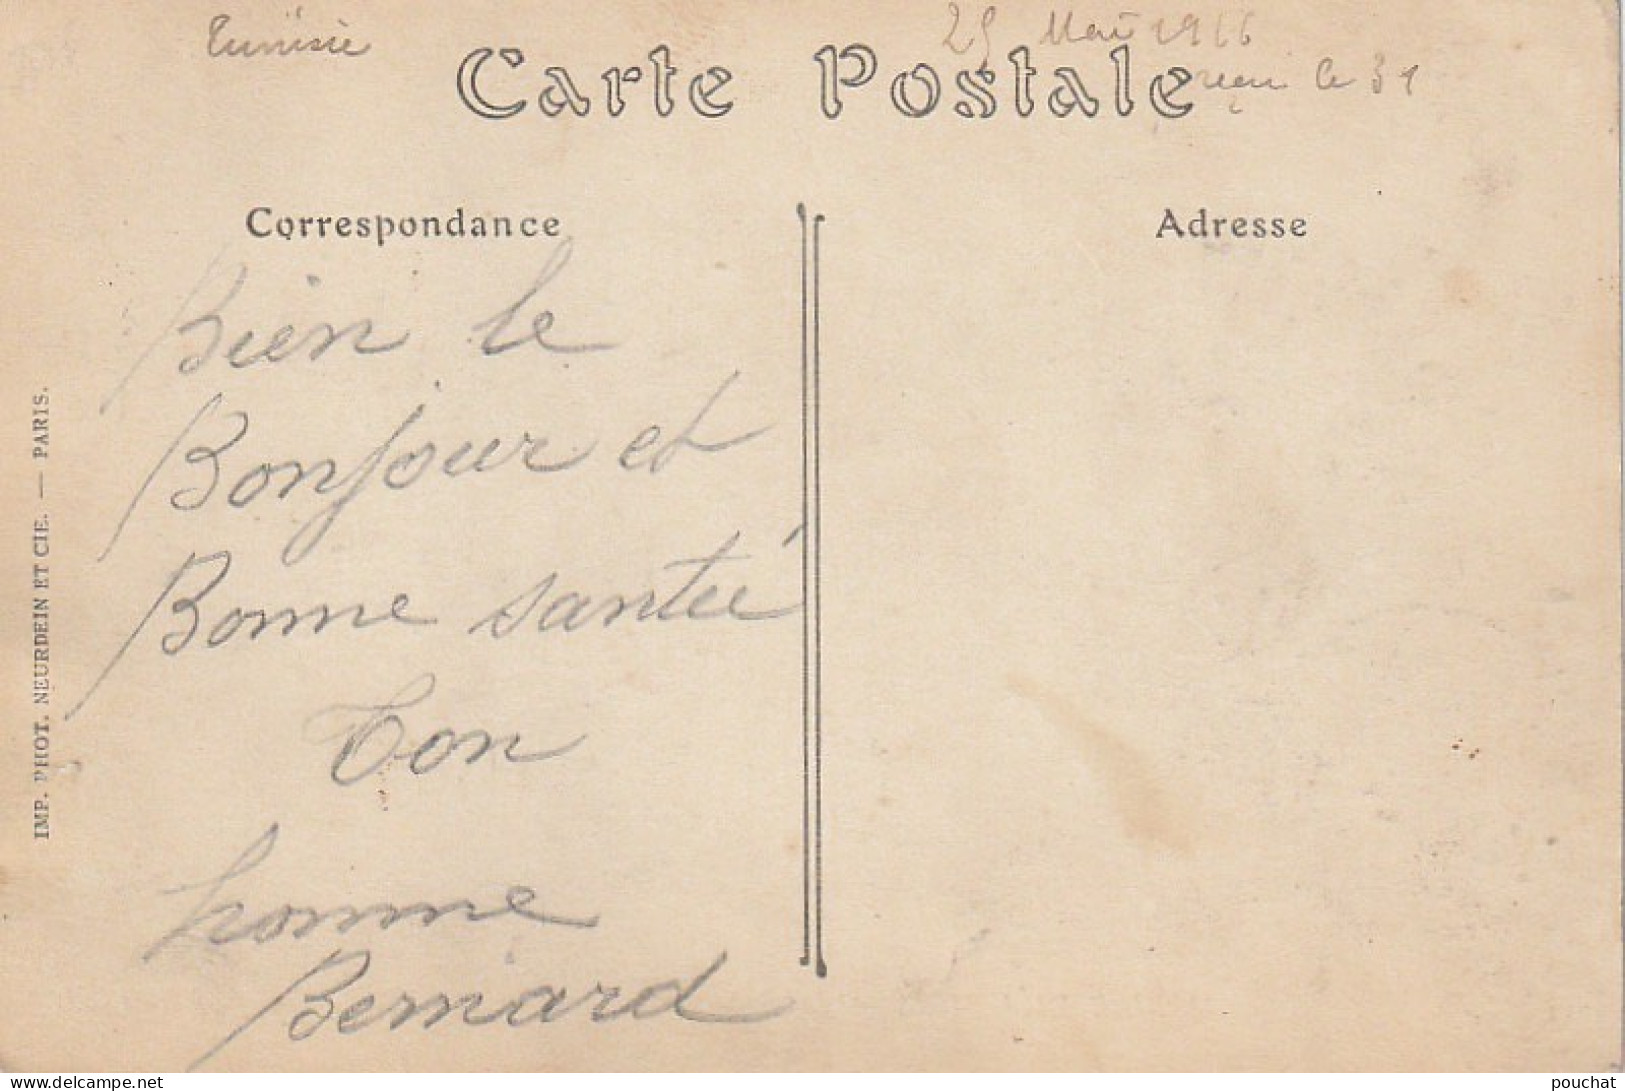 Tunisie
25 Mai 1916
reçu le 31
Carte Postale
Correspondance
Adresse
Bien le
Bonjour et
Bonne santeé
Ton
homme
Bernard
IMP. PHOT. NEURDEIN ET CIE. — PARIS.
www.delcampe.net
pouchat